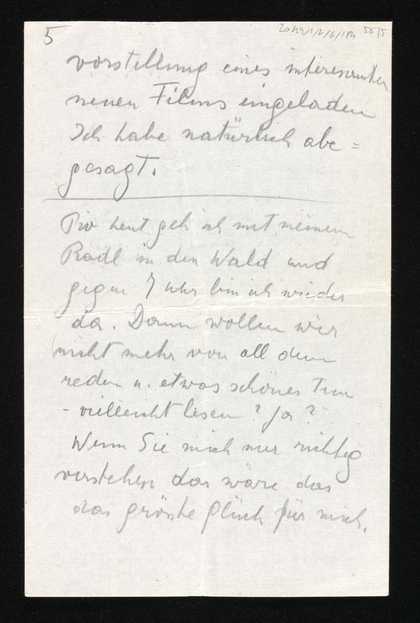 5
vorstellung eines interessanten
neuen Films eingeladen
Ich habe natürlich abe=
gesagt.
Für heut geh ich mit meinem
Radl in den Wald und
gegen 7 Uhr bin ich wieder
da. Dann wollen wir
nicht mehr von all dem
reden u. etwas schönes tun
- vielleicht lesen? Ja?
Wenn Sie mich nur richtig
verstehen das wäre das
das größte Glück für mich.